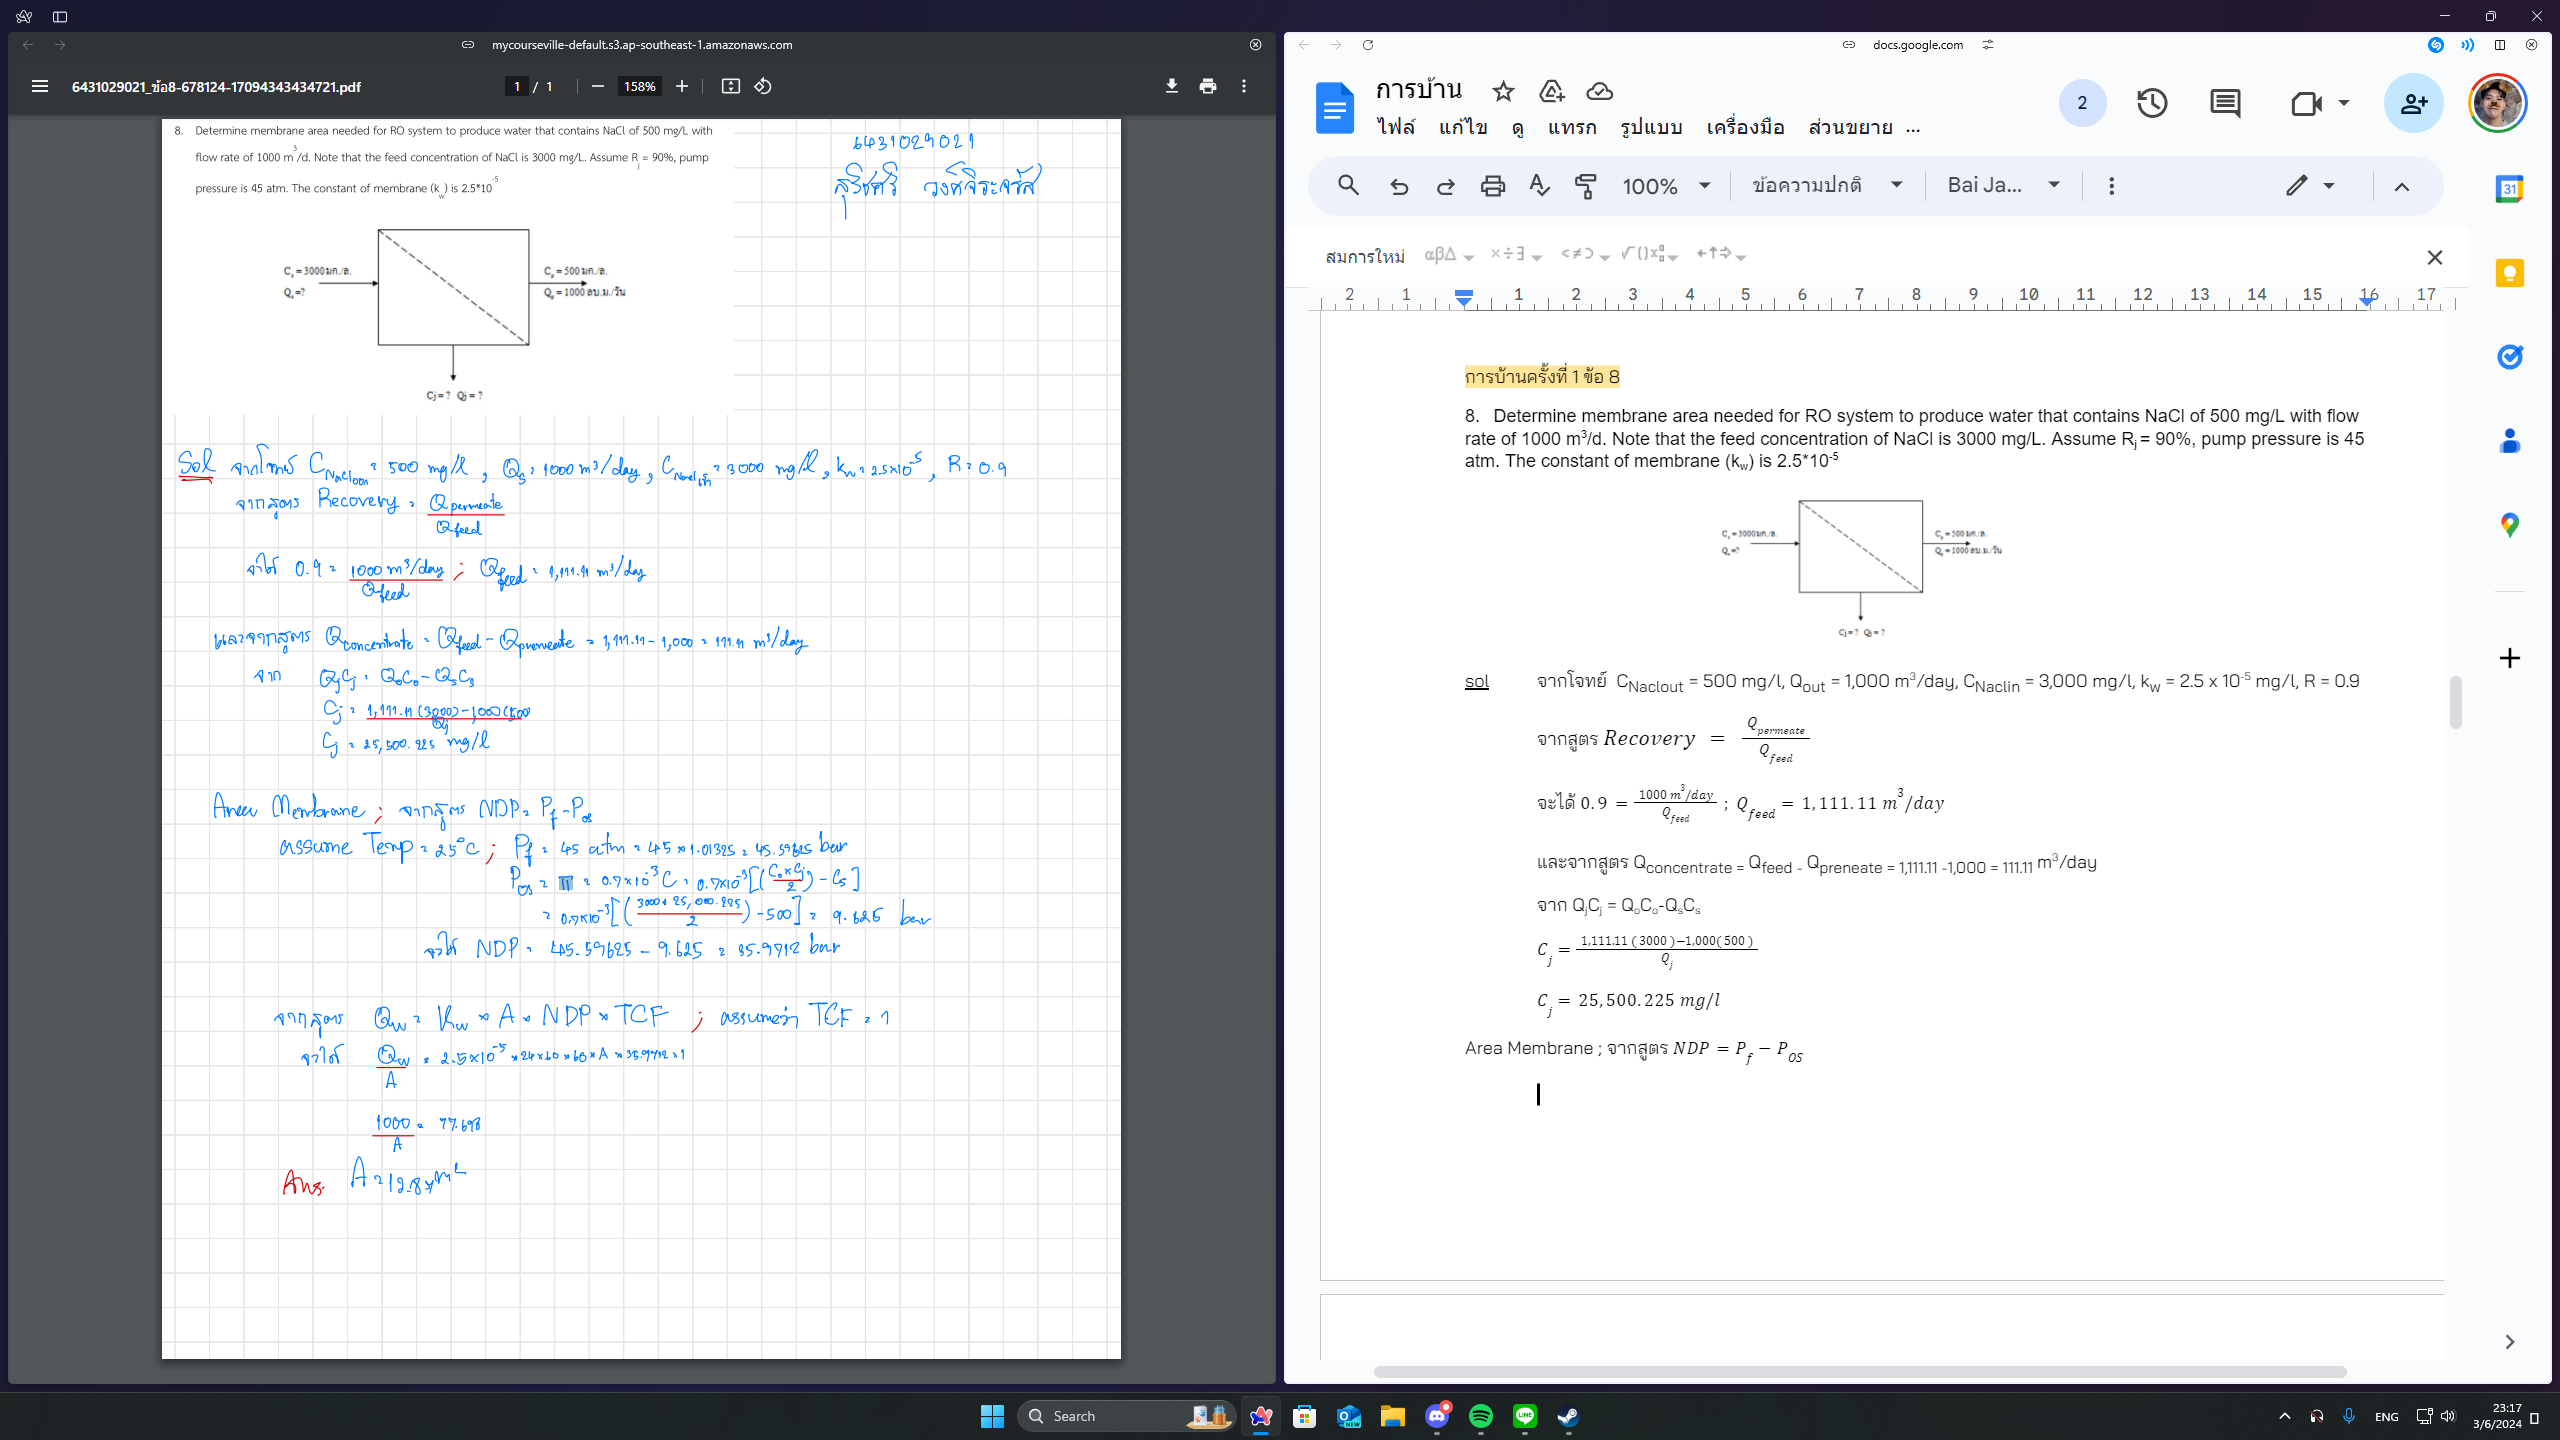 mycourseville-default.s3.ap-southeast-1.amazonaws.com
6431029021_ข้อ8-678124-17094343434721.pdf
1 / 1
158%
8. Determine membrane area needed for RO system to produce water that contains NaCl of 500 mg/L with
flow rate of 1000 m3/d. Note that the feed concentration of NaCl is 3000 mg/L. Assume Rj = 90%, pump
pressure is 45 atm. The constant of membrane (kw) is 2.5*10-5
6431029021
Co = 3000 มก./ล.
Qo =?
Cs = 500 มก./ล.
Qs = 1000 ลบ.ม./วัน
Cj = ? Qj = ?
Sol จากโจทย์ CNaClออก = 500 mg/l, Qs = 1000 m3/day, CNaClเข้า = 3000 mg/l, kw = 2.5×10-5, R = 0.9
จากสูตร Recovery = Qpermeate / Qfeed
จะได้ 0.9 = 1000 m3/day / Qfeed ; Qfeed = 1,111.11 m3/day
และจากสูตร Qconcentrate = Qfeed - Qpremeate = 1,111.11 - 1,000 = 111.11 m3/day
จาก QjCj = QoCo - QsCs
Cj = 1,111.11 (3000) - 1,000 (500) / Qj
Cj = 25,500.225 mg/l
Area Membrane ; จากสูตร NDP = Pf - Pos
assume Temp = 25°C ; Pf = 45 atm = 45 × 1.01325 = 45.59625 bar
Pos = π = 0.7×10-3 C = 0.7×10-3 [(Co × Cj / 2) - Cs]
= 0.7×10-3 [(3000 + 25,000.225 / 2) - 500] = 9.625 bar
จะได้ NDP = 45.59625 - 9.625 = 35.9712 bar
จากสูตร Qw = Kw × A × NDP × TCF ; assumeว่า TCF = 1
จะได้ Qw / A = 2.5×10-5 × 24 × 60 × 60 × A × 35.9712 × 1
1000 / A = 77.698
Ans. A = 12.87 m2
docs.google.com
การบ้าน
2
ไฟล์ แก้ไข ดู แทรก รูปแบบ เครื่องมือ ส่วนขยาย ...
100% ข้อความปกติ Bai Ja...
31
สมการใหม่ αβΔ ×÷∃ <≠⊃ √()x ←↑⇒
2 1 1 2 3 4 5 6 7 8 9 10 11 12 13 14 15 16 17
การบ้านครั้งที่ 1 ข้อ 8
8. Determine membrane area needed for RO system to produce water that contains NaCl of 500 mg/L with flow
rate of 1000 m3/d. Note that the feed concentration of NaCl is 3000 mg/L. Assume Rj = 90%, pump pressure is 45
atm. The constant of membrane (kw) is 2.5*10-5
Co = 3000มก./ล.
Qo =?
Cs = 500 มก./ล.
Qs = 1000 ลบ.ม./วัน
Cj = ? Qj = ?
sol จากโจทย์ CNaclout = 500 mg/l, Qout = 1,000 m3/day, CNaclin = 3,000 mg/l, kw = 2.5 x 10-5 mg/l, R = 0.9
จากสูตร Recovery = Qpermeate / Qfeed
จะได้ 0.9 = 1000 m3/day / Qfeed ; Qfeed = 1,111.11 m3/day
และจากสูตร Qconcentrate = Qfeed - Qpreneate = 1,111.11 -1,000 = 111.11 m3/day
จาก QjCj = QoCo-QsCs
Cj = 1,111.11 (3000) −1,000(500) / Qj
Cj = 25,500.225 mg/l
Area Membrane ; จากสูตร NDP = Pf − POS
Search
NEW
LINE
ENG
23:17
3/6/2024